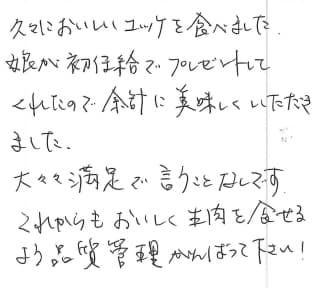 久々においしいユッケを食べました.
娘が初任給でプレゼントして
くれたので余計に美味しくいただき
ました.
大々々満足で言うことなしです.
これからもおいしく生肉を食せる
よう品質管理がんばって下さい!